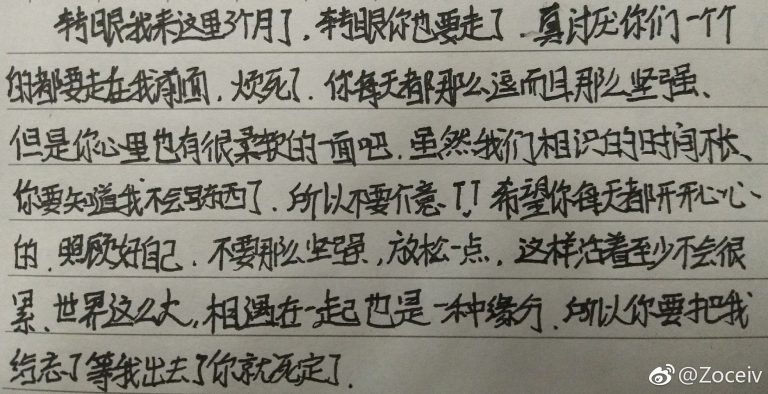 转眼我来这里3个月了，转眼你也要走了，真讨厌你们一个个
的都要走在我前面，烦死了．你每天都那么逗而且那么坚强、
但是你心里也有很柔软的一面吧．虽然我们相识的时间不长、
你要知道我不会写东西了．所以不要介意．！！希望你每天都开开心心
的．照顾好自己．不要那么坚强，放松一点，这样活着至少不会很
累．世界这么大，相遇在一起也是一种缘分．所以你要把我
给忘了等我出去了你就死定了．
@Zoceiv